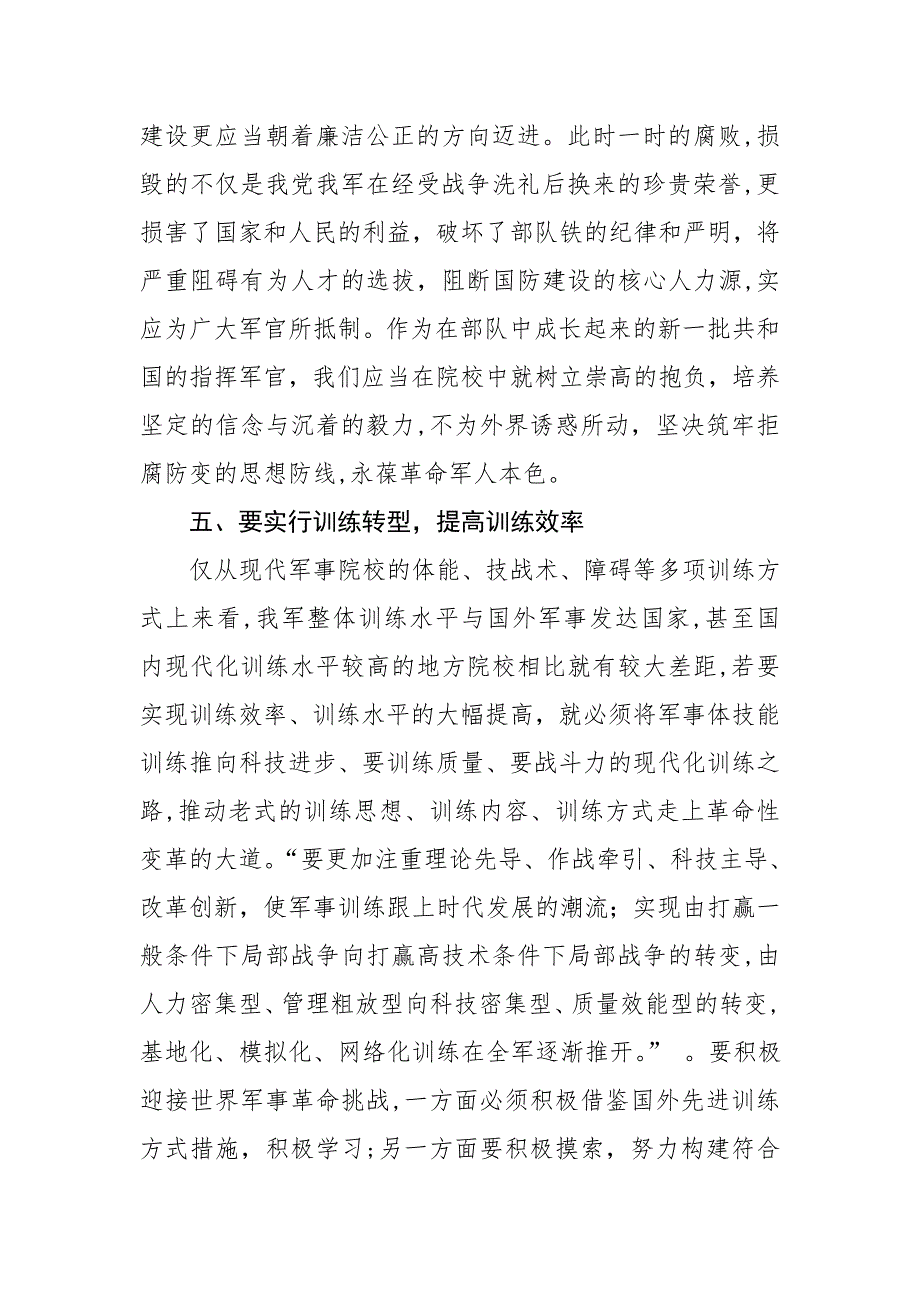 建设更应当朝着廉洁公正的方向迈进。此时一时的腐败,损
毁的不仅是我党我军在经受战争洗礼后换来的珍贵荣誉,更
损害了国家和人民的利益，破坏了部队铁的纪律和严明，将
严重阻碍有为人才的选拔，阻断国防建设的核心人力源,实
应为广大军官所抵制。作为在部队中成长起来的新一批共和
国的指挥军官，我们应当在院校中就树立崇高的抱负，培养
坚定的信念与沉着的毅力,不为外界诱惑所动，坚决筑牢拒
腐防变的思想防线,永葆革命军人本色。
五、要实行训练转型，提高训练效率
仅从现代军事院校的体能、技战术、障碍等多项训练方
式上来看,我军整体训练水平与国外军事发达国家,甚至国
内现代化训练水平较高的地方院校相比就有较大差距,若要
实现训练效率、训练水平的大幅提高，就必须将军事体技能
训练推向科技进步、要训练质量、要战斗力的现代化训练之
路,推动老式的训练思想、训练内容、训练方式走上革命性
变革的大道。“要更加注重理论先导、作战牵引、科技主导、
改革创新，使军事训练跟上时代发展的潮流；实现由打赢一
般条件下局部战争向打赢高技术条件下局部战争的转变,由
人力密集型、管理粗放型向科技密集型、质量效能型的转变,
基地化、模拟化、网络化训练在全军逐渐推开。” 。要积极
迎接世界军事革命挑战,一方面必须积极借鉴国外先进训练
方式措施，积极学习;另一方面要积极摸索，努力构建符合